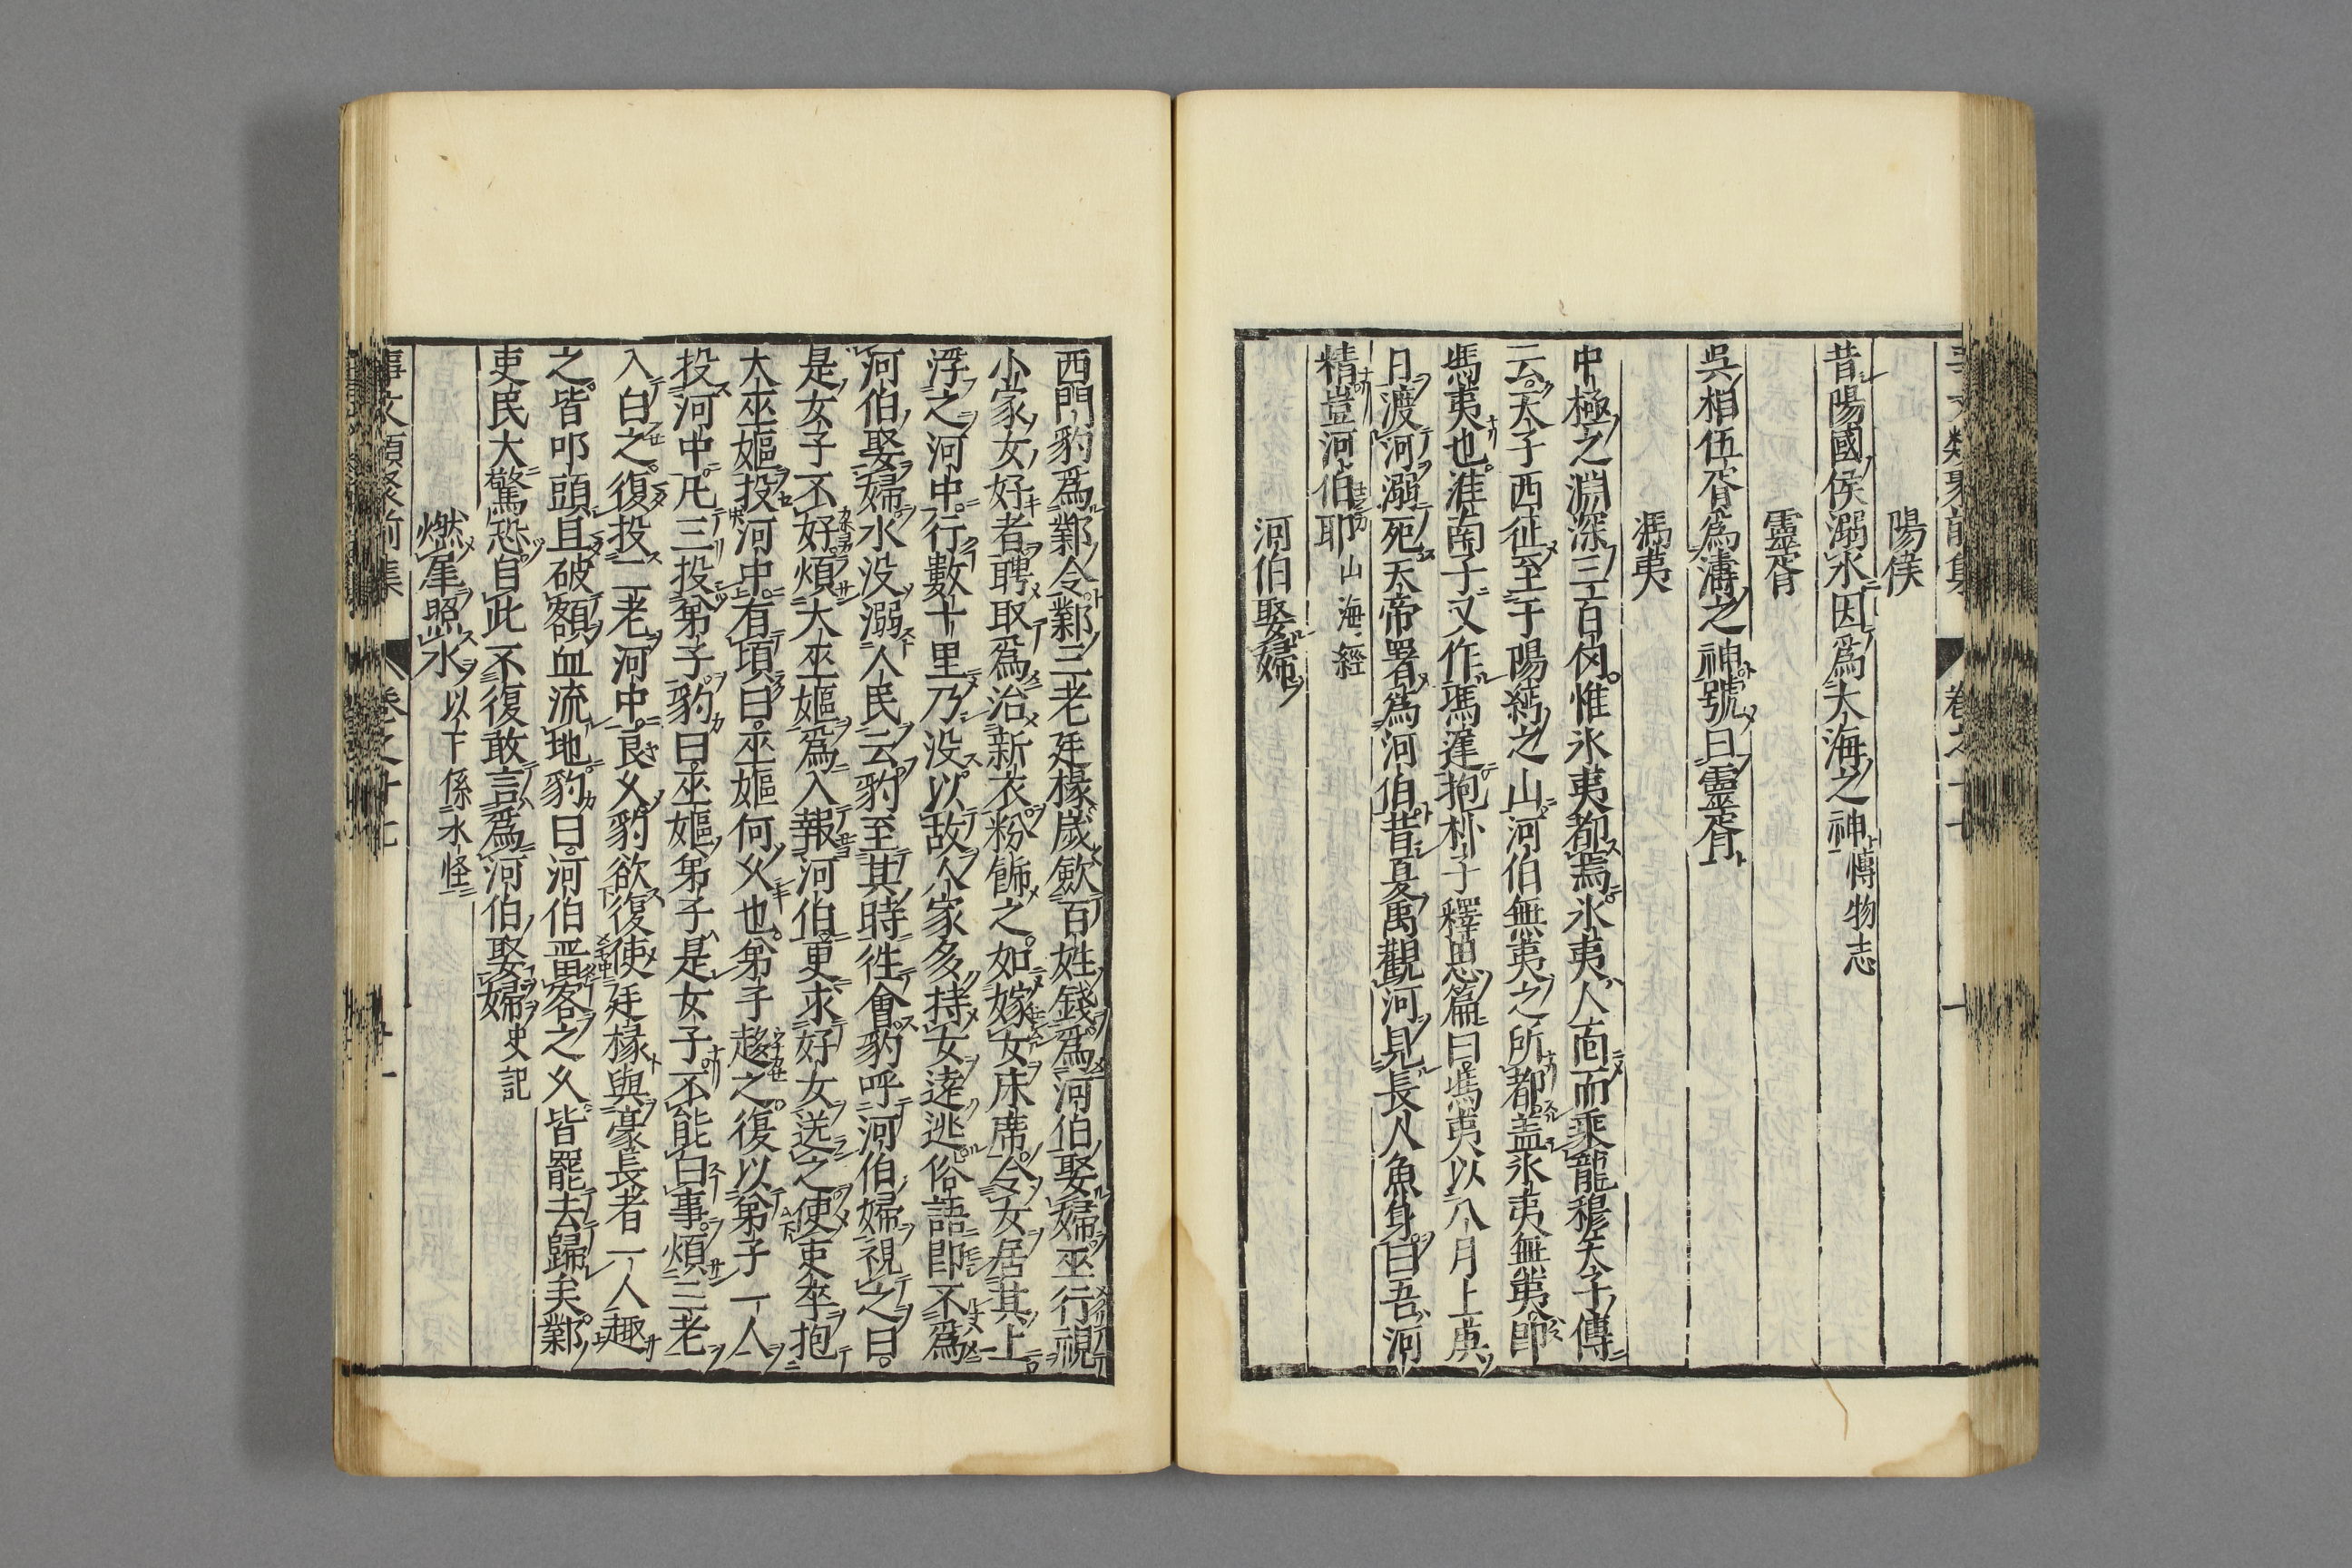 陽侯
昔陽國侯溺水因爲大海之神 博物志
靈胥
吳相伍胥爲濤之神號曰靈胥
馮夷
中極之淵深三百仭惟氷夷都焉氷夷人面而乘龍穆天子傳
云天子西征至于陽紆之山河伯無夷之所都盖氷夷無夷即
馮夷也淮南子又作馮遲抱朴子釋鬼篇曰馮夷以八月上庚
日渡河溺死天帝署爲河伯昔夏禹觀河見長人魚身曰吾河
精豈河伯耶 山海經
河伯娶婦
西門豹爲鄴令鄴三老廷椽歲歛百姓錢爲河伯娶婦巫行視
小家女好者聘取爲治新衣粉飾之如嫁女床席令女居其上
浮之河中行數十里乃没以故人家多持女逺逃俗語即不爲
河伯娶婦水没溺人民云豹至其時徃會豹呼河伯婦視之曰
是女子不好煩大巫嫗爲入報河伯更求好女送之使吏卒抱
大巫嫗投河中有頃曰巫嫗何乆也弟子趍之復以弟子一人
投河中凡三投弟子豹曰巫嫗弟子是女子不能白事煩三老
入白之復投三老河中良乆豹欲復使廷椽與豪長者一人趣
之皆叩頭且破額血流地豹曰河伯畱客之乆皆罷去歸矣鄴
吏民大驚恐自此不復敢言爲河伯娶婦 史記
燃犀照水 以下係水怪
事文類聚前集 卷之十七